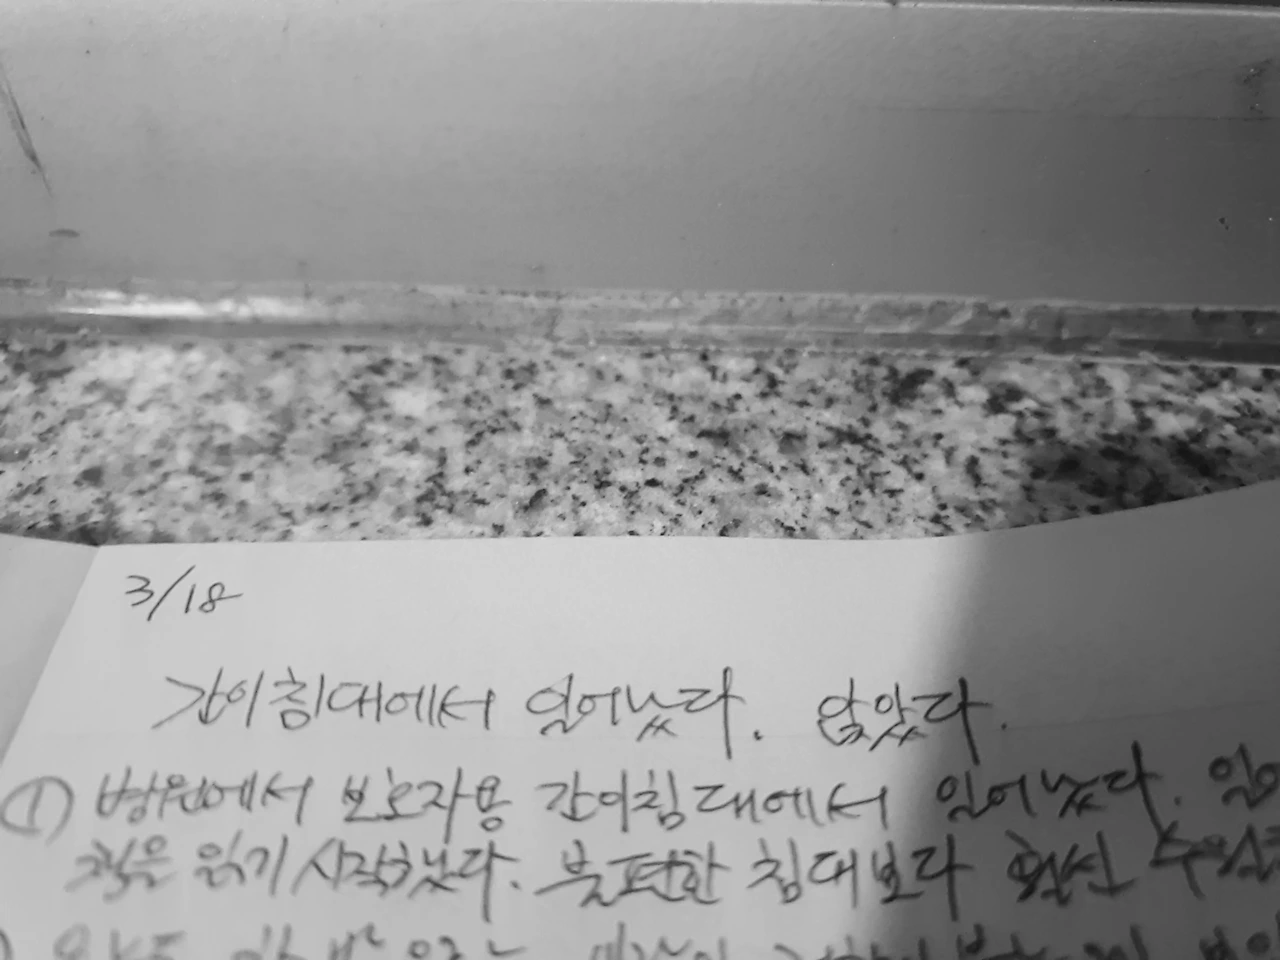 3/18
간이침대에서 일어났다. 앉았다.
① 병원에서 보호자용 간이침대에서 일어났다.
책을 읽기 시작했다. 불편한 침대보다 훨씬